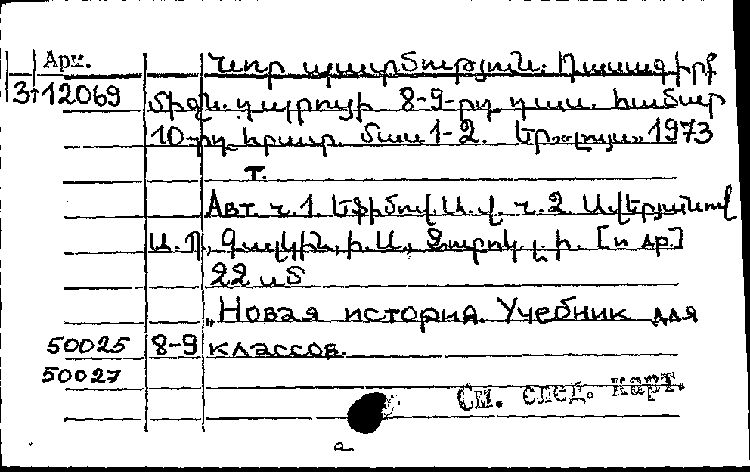 Арм. Նոր պատմություն. Դասագիրք
3т 12069 միջն. դպրոցի 8-9-րդ դաս. համար
10-րդ հրատ. մաս 1-2. Եր. «Լույս» 1973
т.
Авт. ч. 1. Եֆիմով, Ա. Վ. ч. 2. Ավերյանով
Ա. Պ., Գալկին, Ի. Ա., [и др.]
22 սմ
„Новая история. Учебник для
50025 8-9 классов.
50027
См. след. карт.